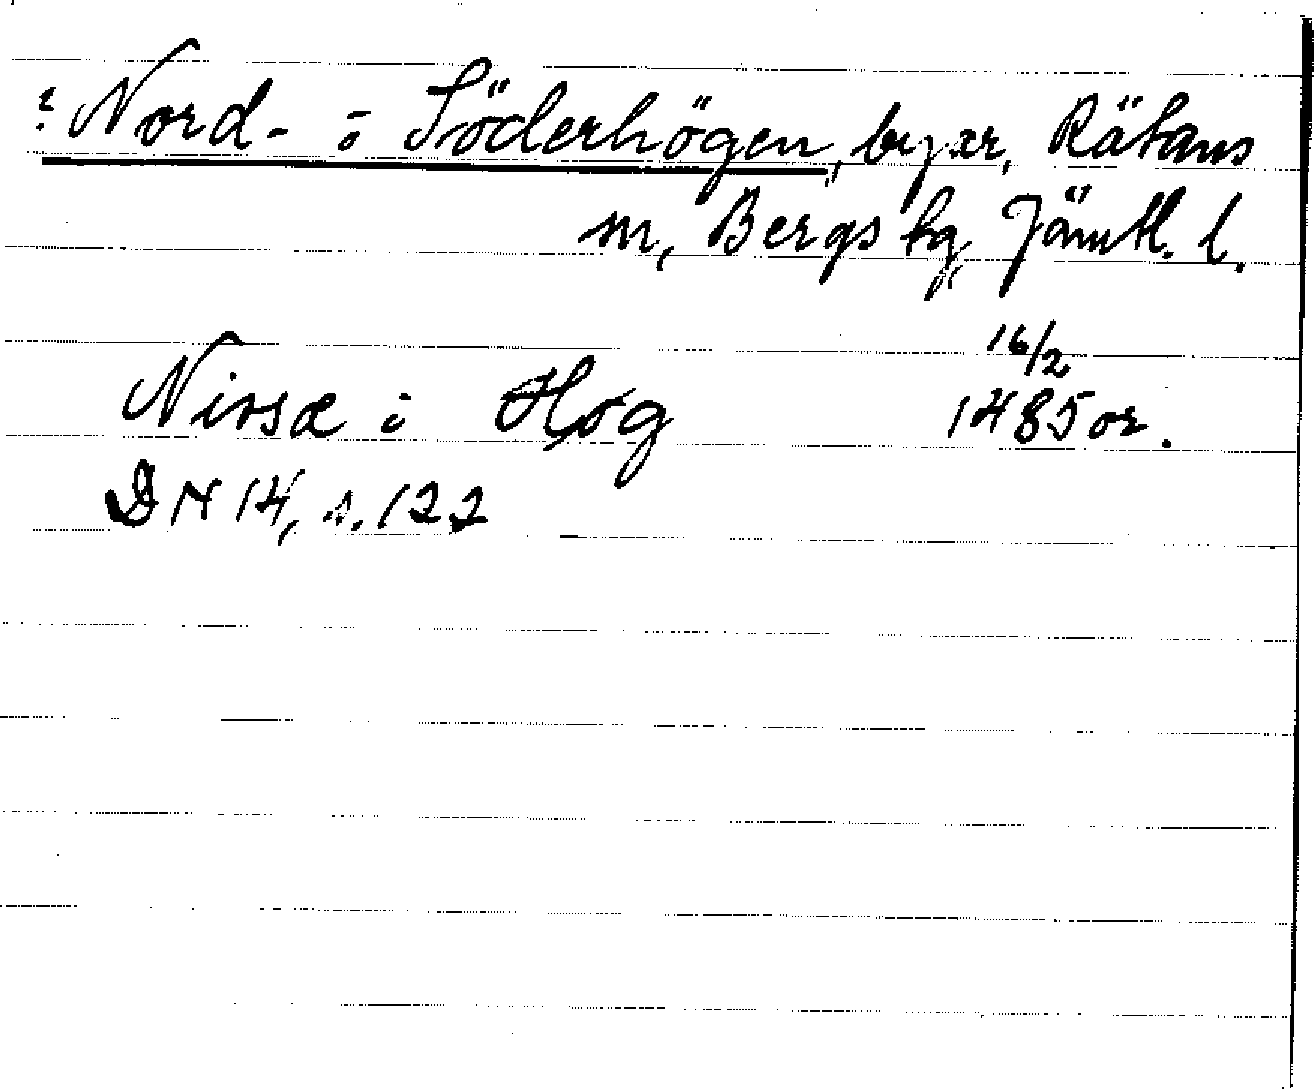 ? Nord- o Söderhögen, byar, Rätans
sn, Bergs tg, Jämtl. l.
16/2
Nissæ i Hög 1485 or.
DN 14, s. 122